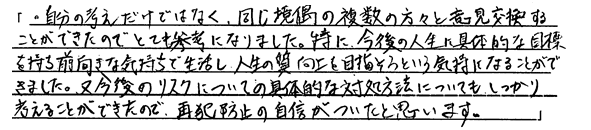 「・自分の考えだけではなく、同じ境遇の複数の方々と意見交換する
ことができたのでとても参考になりました。特に、今後の人生に具体的な目標
を持ち前向きな気持ちで生活し、人生の質向上を目指そうという気持になることがで
きました。又今後のリスクについての具体的な対処方法についてもしっかり
考えることができたので、再犯防止の自信がついたと思います。」